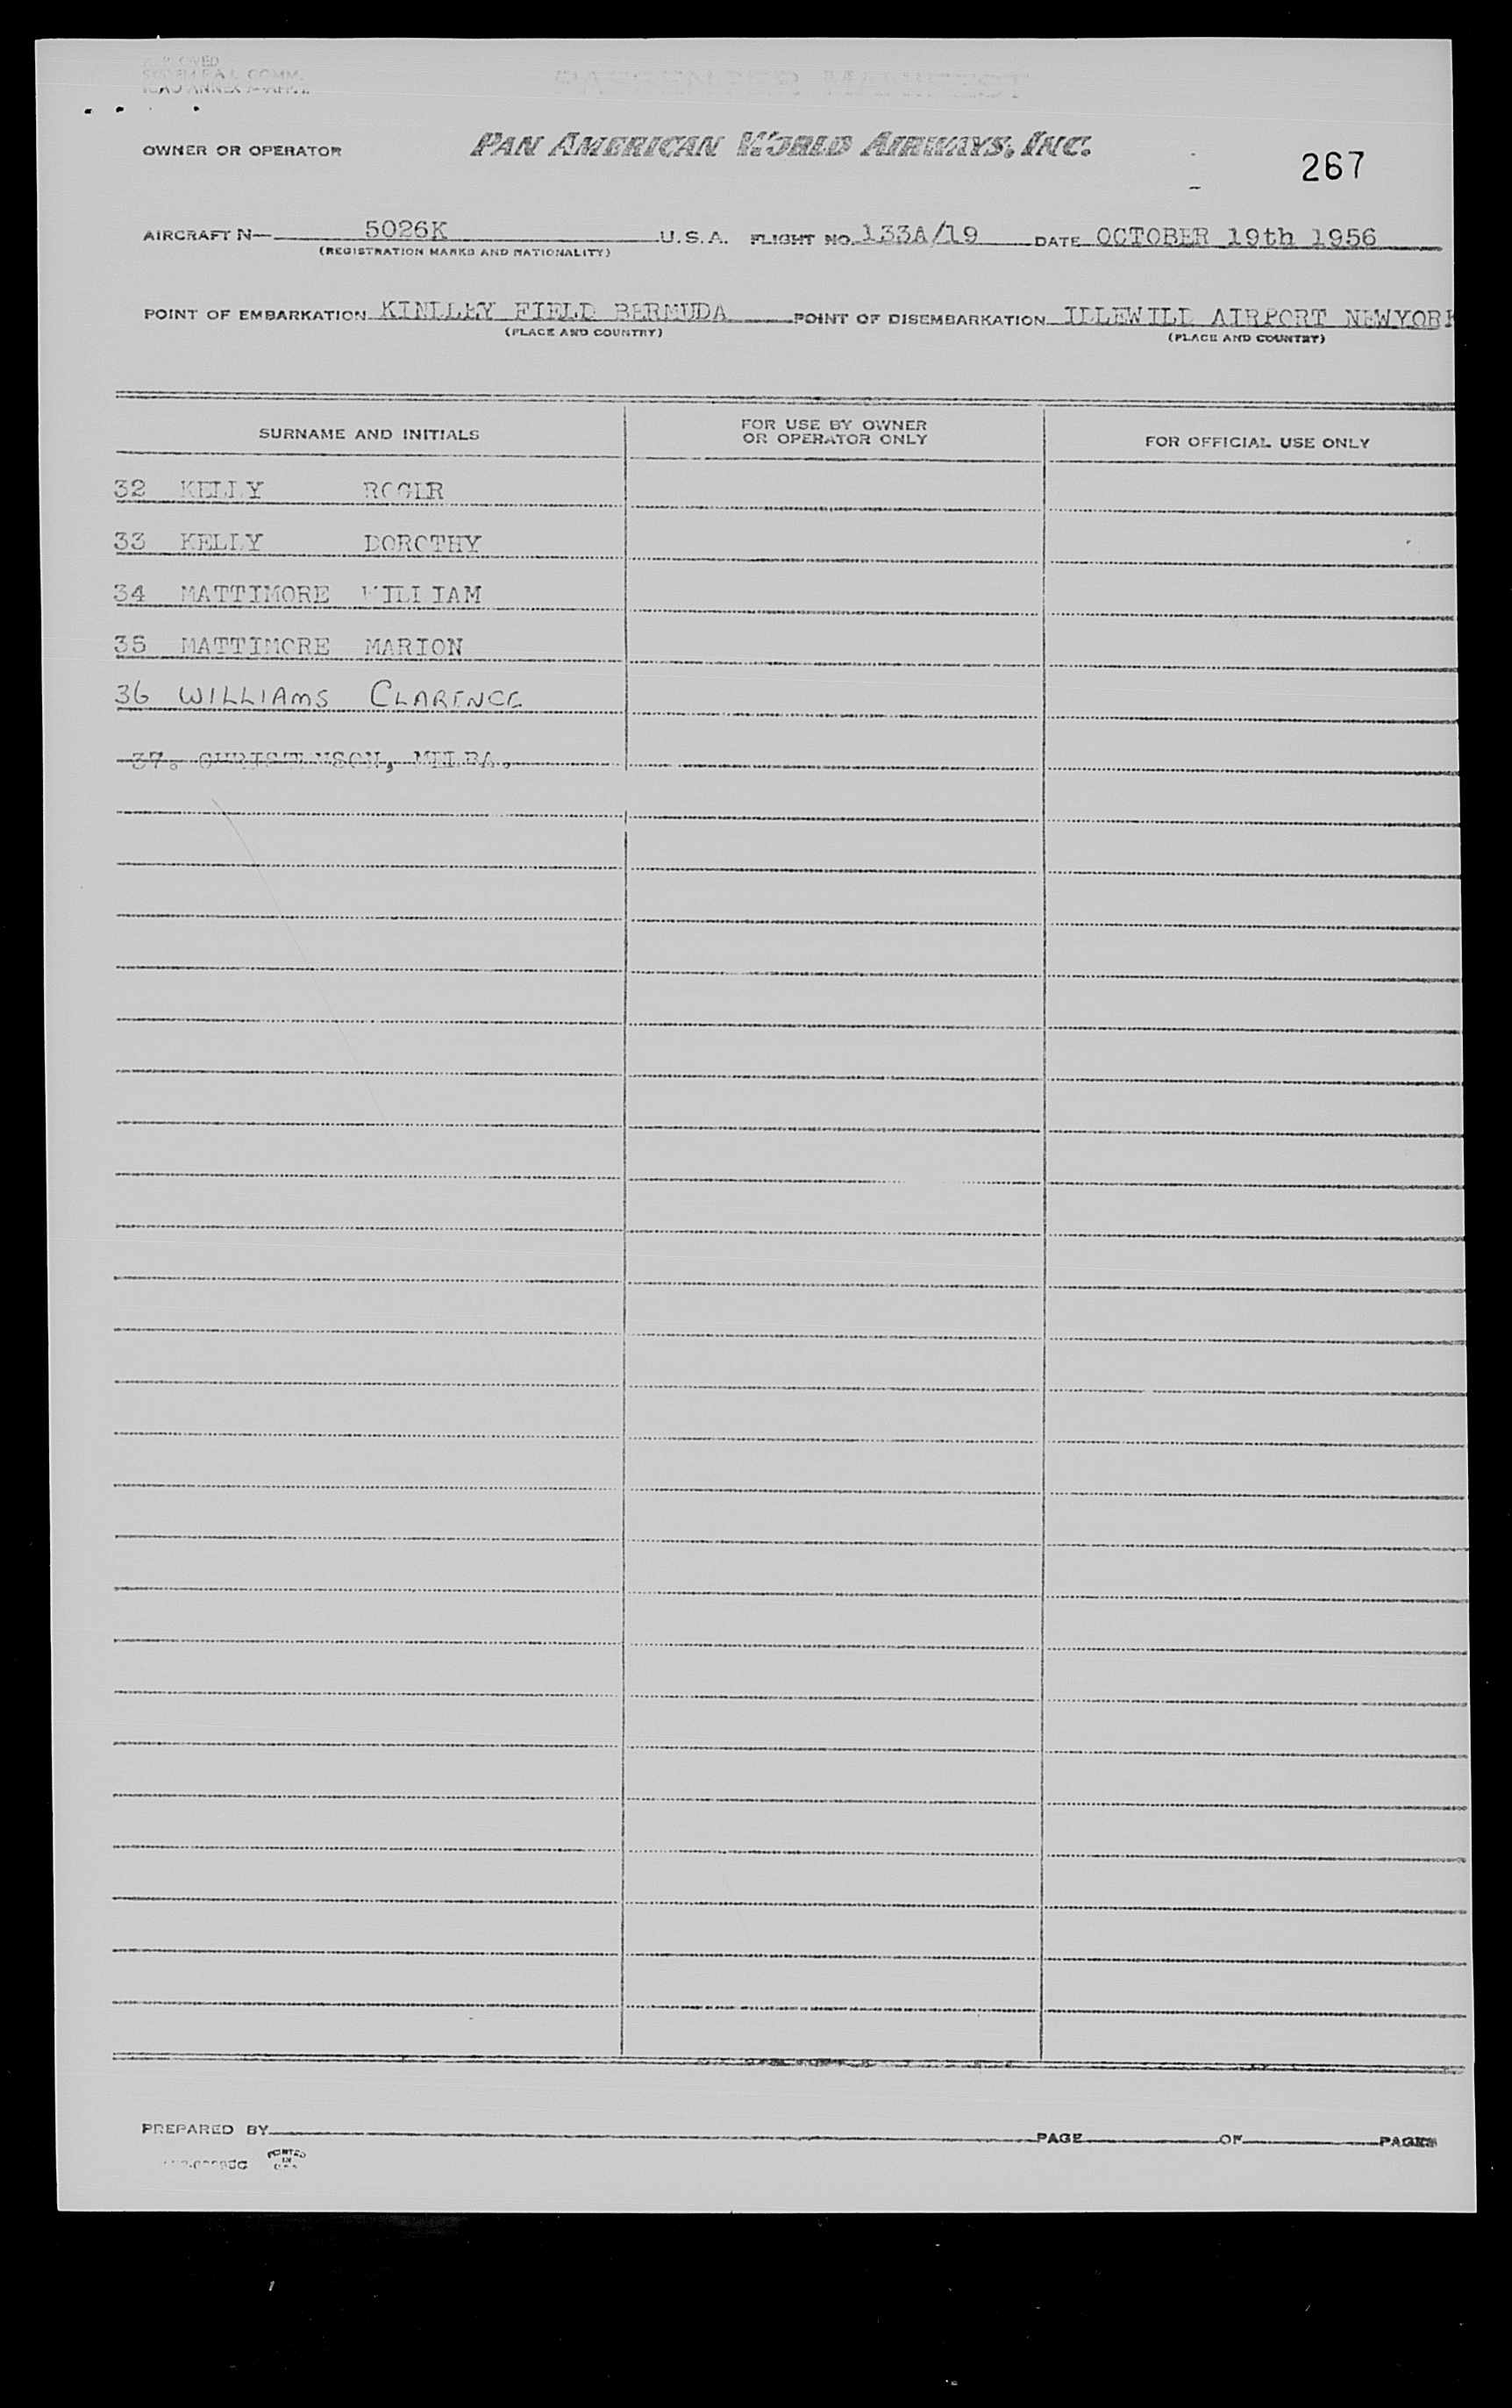 PASSENGER MANIFEST
OWNER OR OPERATOR
PAN AMERICAN WORLD AIRWAYS, INC.
267
AIRCRAFT N— 5026K U.S.A. FLIGHT NO. 133A/19 DATE OCTOBER 19th 1956
(REGISTRATION MARKS AND NATIONALITY)
POINT OF EMBARKATION KINDLEY FIELD BERMUDA POINT OF DISEMBARKATION IDLEWILD AIRPORT NEWYORK
(PLACE AND COUNTRY) (PLACE AND COUNTRY)
SURNAME AND INITIALS
FOR USE BY OWNER
OR OPERATOR ONLY
FOR OFFICIAL USE ONLY
32 KELLY ROGER
33 KELLY DOROTHY
34 MATTIMORE WILLIAM
35 MATTIMORE MARION
36 WILLIAMS CLARENCE
37. CHRISTENSON, MELBA.
PREPARED BY PAGE OF PAGES
PRINTED
IN
U.S.A.